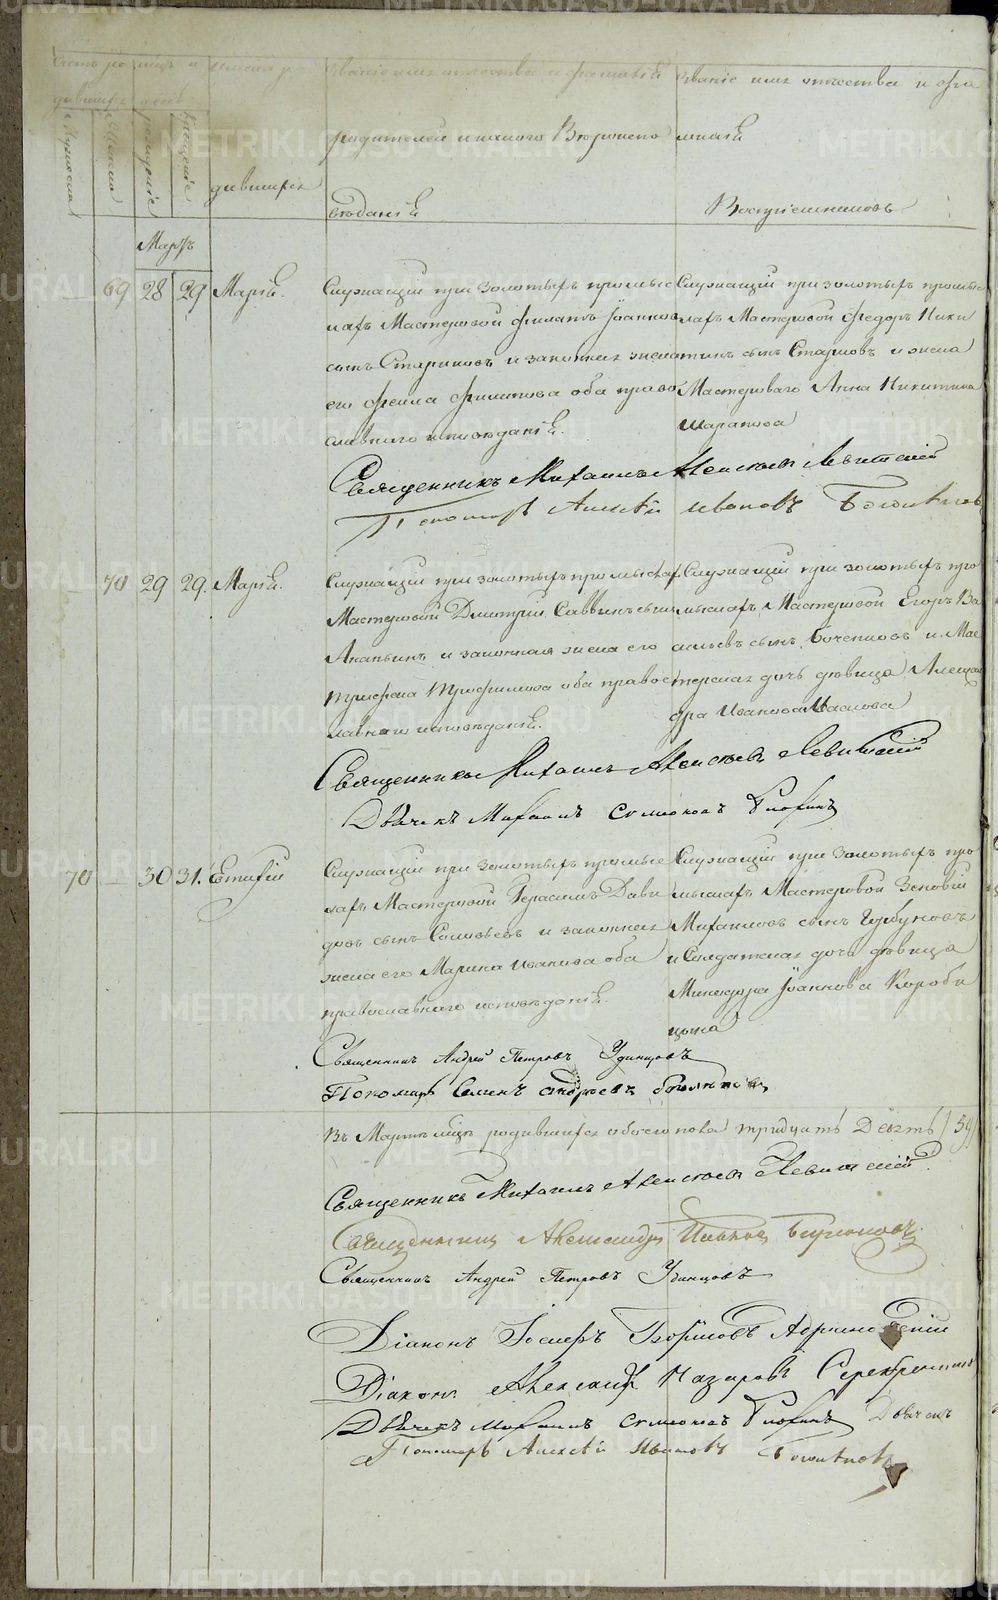 METRIKI.GASO-URAL.RU
Счетъ ро
дившихся
Мужеска
Женска
рожденiе
Крещенiе
Имена ро
дившихся
Званiе имя отчество и фамилiй
родителей и какого Вѣроиспо
вѣданiй
Званiе имя отчества и фа
милiй
Воспрiемниковъ
Мартъ
69 28 29 Марiй.
Служащiй при золотыхъ промыс
лахъ Мастеровой Филатъ Iоанновъ
сынъ Стариковъ и законная жена
его Филипова оба право
славнаго исповѣданiй.
Служащiй при золотыхъ промыс
лахъ Мастеровой Федоръ Ники
тинъ сынъ Старковъ и жена
Мастерового Анна Никитина
Шарапова
Священникъ Михаилъ Алексѣевъ Левитскiй
Пономарь Алексѣй Ивановъ
70 29 29. Марiй.
Служащiй при золотыхъ промыслах
Мастеровой Дмитрiй Саввинъ сынъ
Ананьинъ и законная жена его
Трофимова оба правос
лавнаго исповѣданiй.
Служащiй при золотыхъ про
мыслахъ Мастеровой Егоръ Ва
сильевъ сынъ и Мас
терская дочь дѣвица Алексан
дра Иванова Маслова
Священникъ Михаилъ Алексѣевъ Левитскiй
Дьячекъ Михаилъ Симеоновъ
70 — 30 31. Евтихiй
Служащiй при золотыхъ промыс
лахъ Мастеровой Герасимъ Дави
довъ сынъ Соловьевъ и законная
жена его Марина Иванова оба
православнаго исповѣданiй.
Служащiй при золотыхъ про
мыслахъ Мастеровой Зеновiй
Михаиловъ сынъ Горбуновъ
и Солдатская дочь дѣвица
Минодора Iоаннова Короби
цына
Священникъ Андрей Петровъ Удинцовъ
Пономарь Семенъ Андреевъ
Въ Мартѣ мцѣ родившихся обоего пола тридцать Девять (39)
Священникъ Михаилъ Алексѣевъ Левитскiй.
Священникъ Александръ Бирюковъ
Священникъ Андрей Петровъ Удинцовъ
Дiаконъ Iосифъ Борисовъ
Дiаконъ Александръ Назаровъ Серебренниковъ
Дьячекъ Михаилъ Симеоновъ Дьячекъ
Пономарь Алексѣй Ивановъ